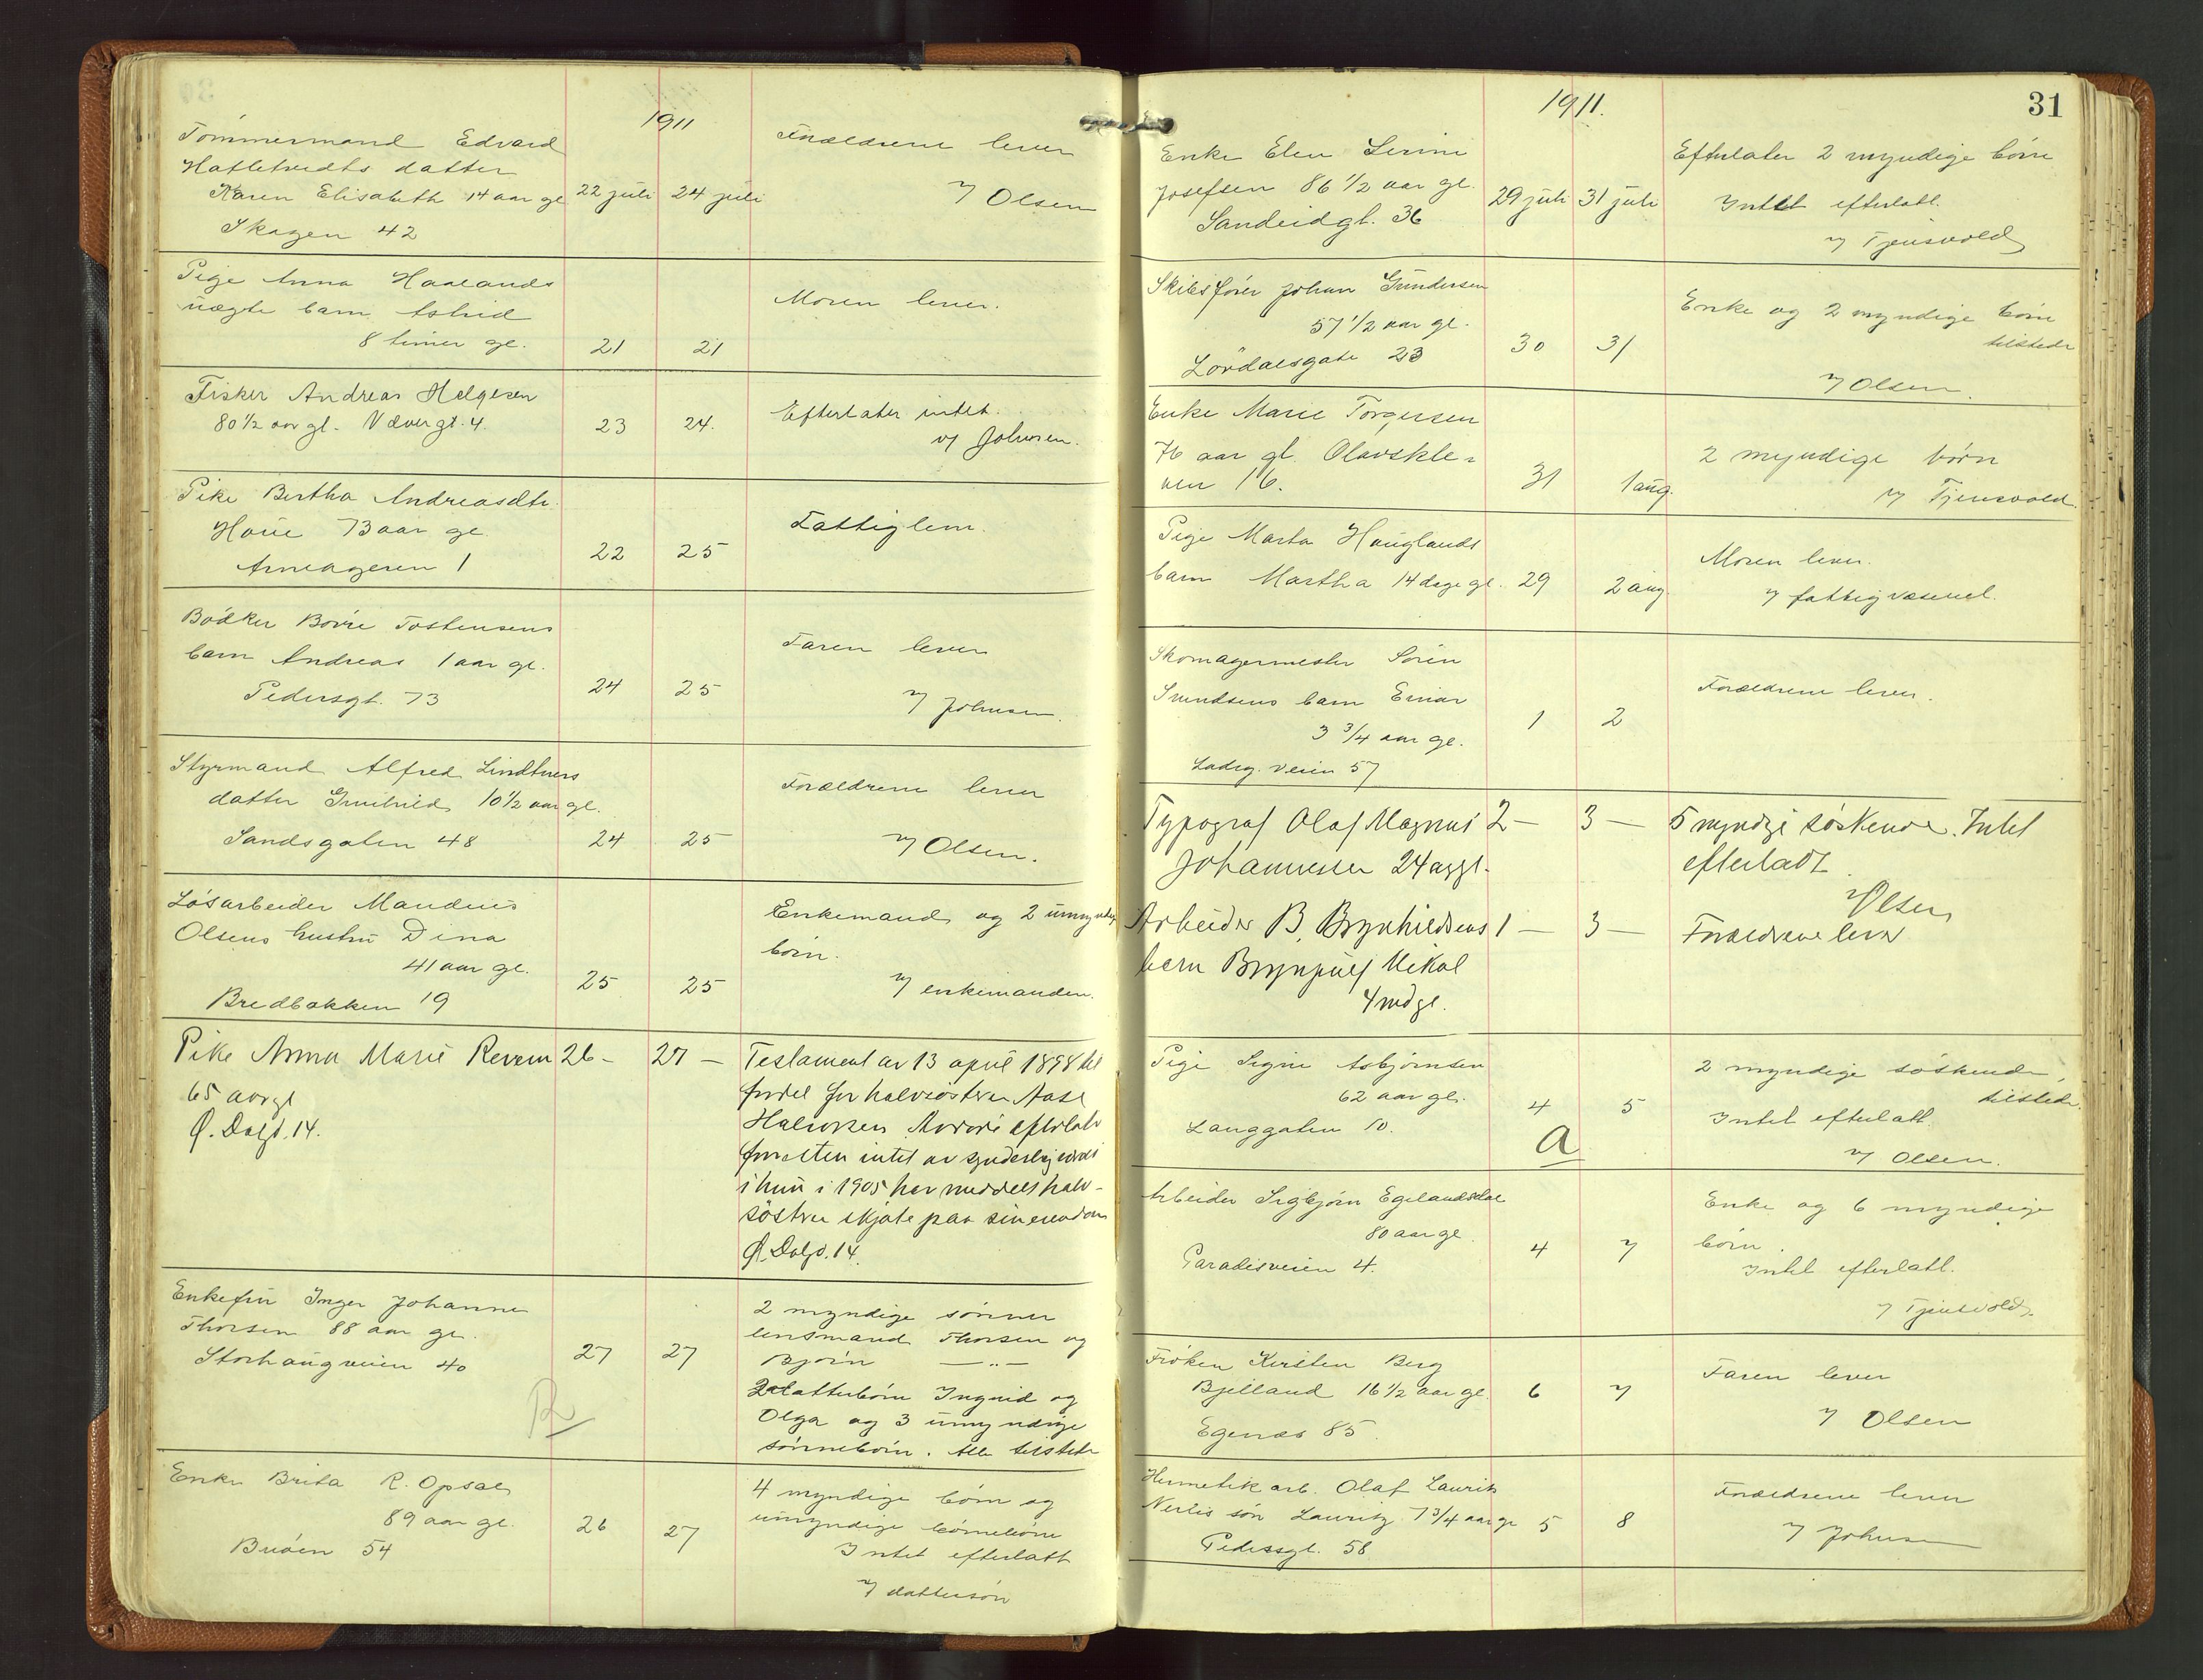 1911
Tömmermand Edvard
Hatletvedts datter
Karen Elisabeth 14 aar gl
Skagen 42
22 juli 24 juli
Forældrene lever
v/ Olsen
Pige Anna Haalands
uægte barn Astrid
8 timer gl.
21 21
Moren lever.
Fisker Andreas Helgesen
80 1/2 aar gl. Vævergt. 4.
23 24.
Efterlater intet.
v/ Johnsen.
Pike Bertha Andreasdtr.
Haue 73 aar gl.
Arneageren 1
22 25
Fattiglem.
Bödker Börre Tostensens
barn Andreas 1 aar gl.
Pedersgt. 73
24 25
Faren lever
v/ Johnsen.
Styrmand Alfred Lindtners
datter Gunhild 10 1/2 aar gl.
Sandsgaten 48
24 25
Forældrene lever
v/ Olsen.
Lösarbeider Maudius
Olsens hustru Dina
41 aar gl.
Bredbakken 19
25 25
Enkemand og 2 umyndige
börn.
v/ enkemanden.
Pike Anna Marie Revem
65 aar gl
Ø. Dalgt. 14.
26 - 27 -
Testament av 13 april 1898 til
fordel for halvsösteren Aase
Halvorsen. Avdöde efterlater
foresten intet av synderlig værdi
i hun i 1905 har meddelt halv-
söstren skjøte paa sin eiendom
Ø. Dalgt. 14.
Enkefru Inger Johanne
Thorsen 88 aar gl.
Storhaugveien 40
27 27
R
2 myndige sönner
lensmand Thorsen og
Björn —„—
2 datterbörn Ingrid og
Olga og 3 umyndige
sönnebörn. Alle tilstede
Enke Brita R. Opsal
89 aar gl.
Buöen 54
26 27
4 myndige börn og
umyndige börnebörn
Intet efterlatt
v/ dattersön
31
1911.
Enke Elen Serine
Josefsen 86 1/2 aar gl.
Sandeidgt. 36
29 juli 31 juli
Efterlater 2 myndige börn
Intet efterlatt.
v/ Tjensvold
Skibsförer Johan Gundersen
57 1/2 aar gl.
Lövdalsgate 23
30 31
Enke og 2 myndige börn
tilstede
v/ Olsen.
Enke Marie Torgersen
76 aar gl. Olavskle-
ven 16.
31 1 aug.
2 myndige börn
v/ Tjensvold.
Pige Marta Hauglands
barn Martha 14 dage gl.
29 2 aug
Moren lever.
v/ fattigvæsenet.
Skomagermester Sörin
Svendsens barn Einar
3 3/4 aar gl.
Ladeg. veien 57
1 2
Forældrene lever.
Typograf Olaf Magnus
Johannessen 24 aar gl.
2 — 3 —
5 myndige söskende. Intet
efterladt.
v/ Olsen
Arbeider B. Brynhildsens
barn Brynjulf Mikal
4 md gl.
1 — 3 —
Forældrene lever
Pige Signe Asbjörnsen
62 aar gl.
Langgaten 10.
4 5
a
2 myndige söskende,
tilstede.
Intet efterlatt.
v/ Olsen.
Arbeider Sigbjörn Egelandsdal
80 aar gl.
Paradisveien 4.
4 7
Enke og 6 myndige
börn.
Intet efterlatt.
v/ Tjensvold.
Fröken Kirsten Berg
Bjelland 16 1/2 aar gl.
Egenæs 85.
6 7
Faren lever
v/ Olsen
Hermetikarb. Olaf Laurits
Nerlis sön Lauritz 1 3/4 aar gl
Pedersgt. 58
5 8
Forældrene lever
v/ Johnsen